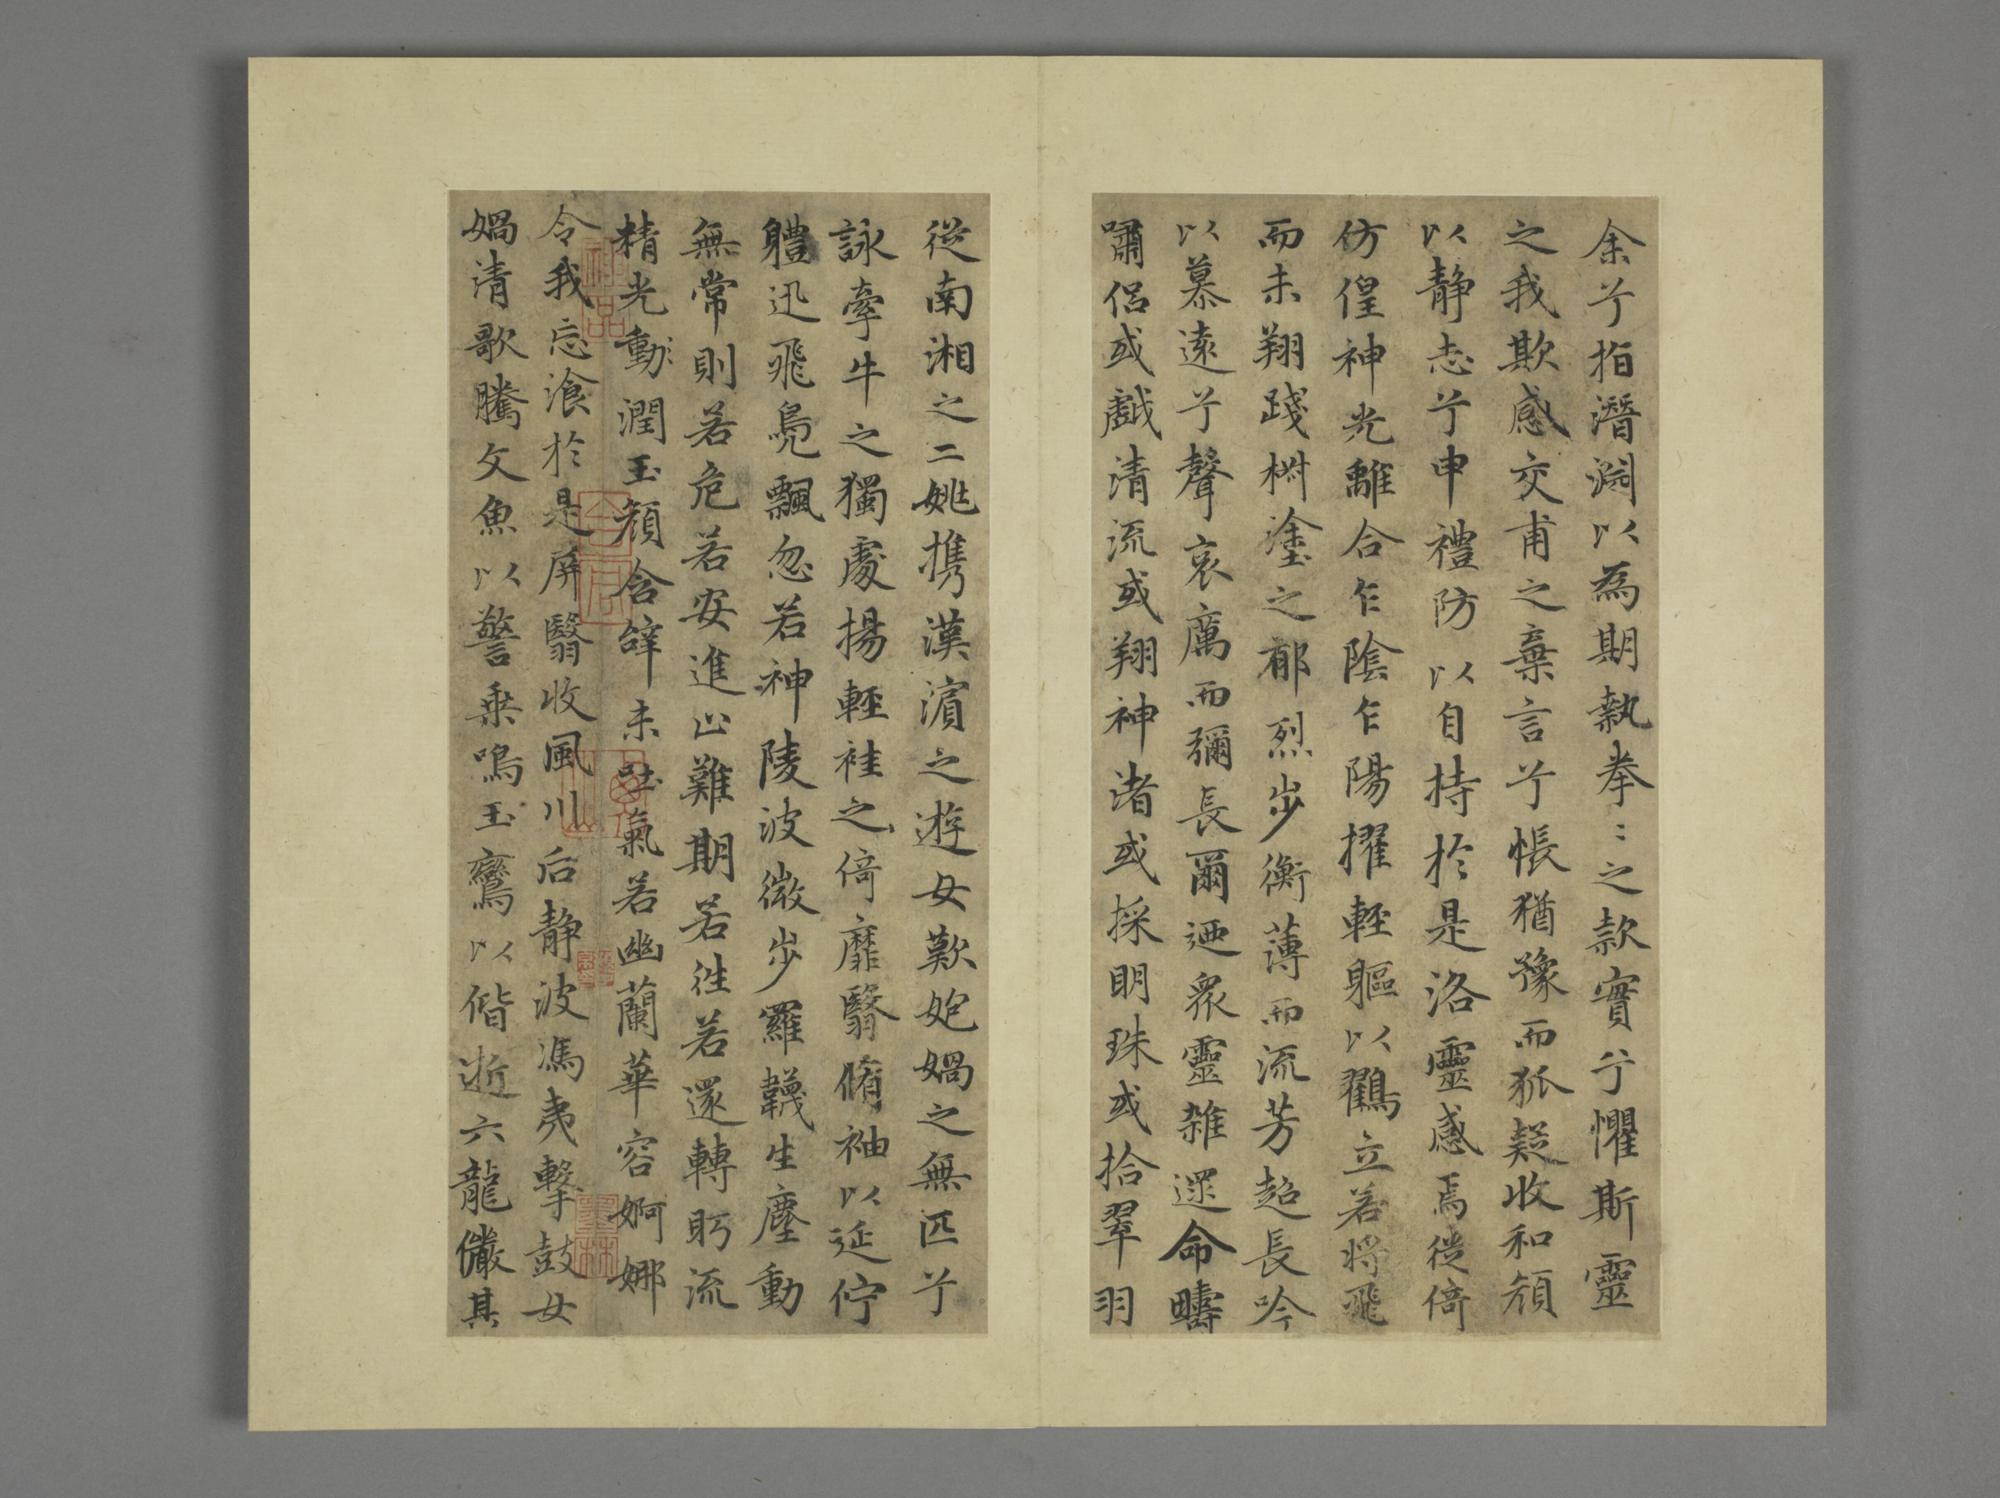 余兮指潛淵以為期執拳〻之款實兮懼斯靈
之我欺感交甫之棄言兮悵猶豫而狐疑收和顏
以靜志兮申禮防以自持於是洛靈感焉徙倚
仿偟神光離合乍陰乍陽擢輕軀以鸖立若將飛
而未翔踐椒塗之郁烈步衡薄而流芳超長吟
以慕遠兮聲哀厲而彌長爾迺衆靈雜遝命疇
嘯侶或戲清流或翔神渚或採明珠或拾翠羽
從南湘之二姚攜漢濱之遊女歎匏媧之無匹兮
詠牽牛之獨處揚輕袿之倚靡翳脩袖以延佇
軆迅飛鳧飄忽若神陵波微步羅韈生塵動
無常則若危若安進止難期若往若還轉眄流
精光動〻潤玉顏含辭未吐氣若幽蘭華容婀娜
令我忘飡於是屏翳收風川后靜波馮夷擊鼓女
媧清歌騰文魚以警乗鳴玉鸞以偕逝六龍儼其
神品
墨林